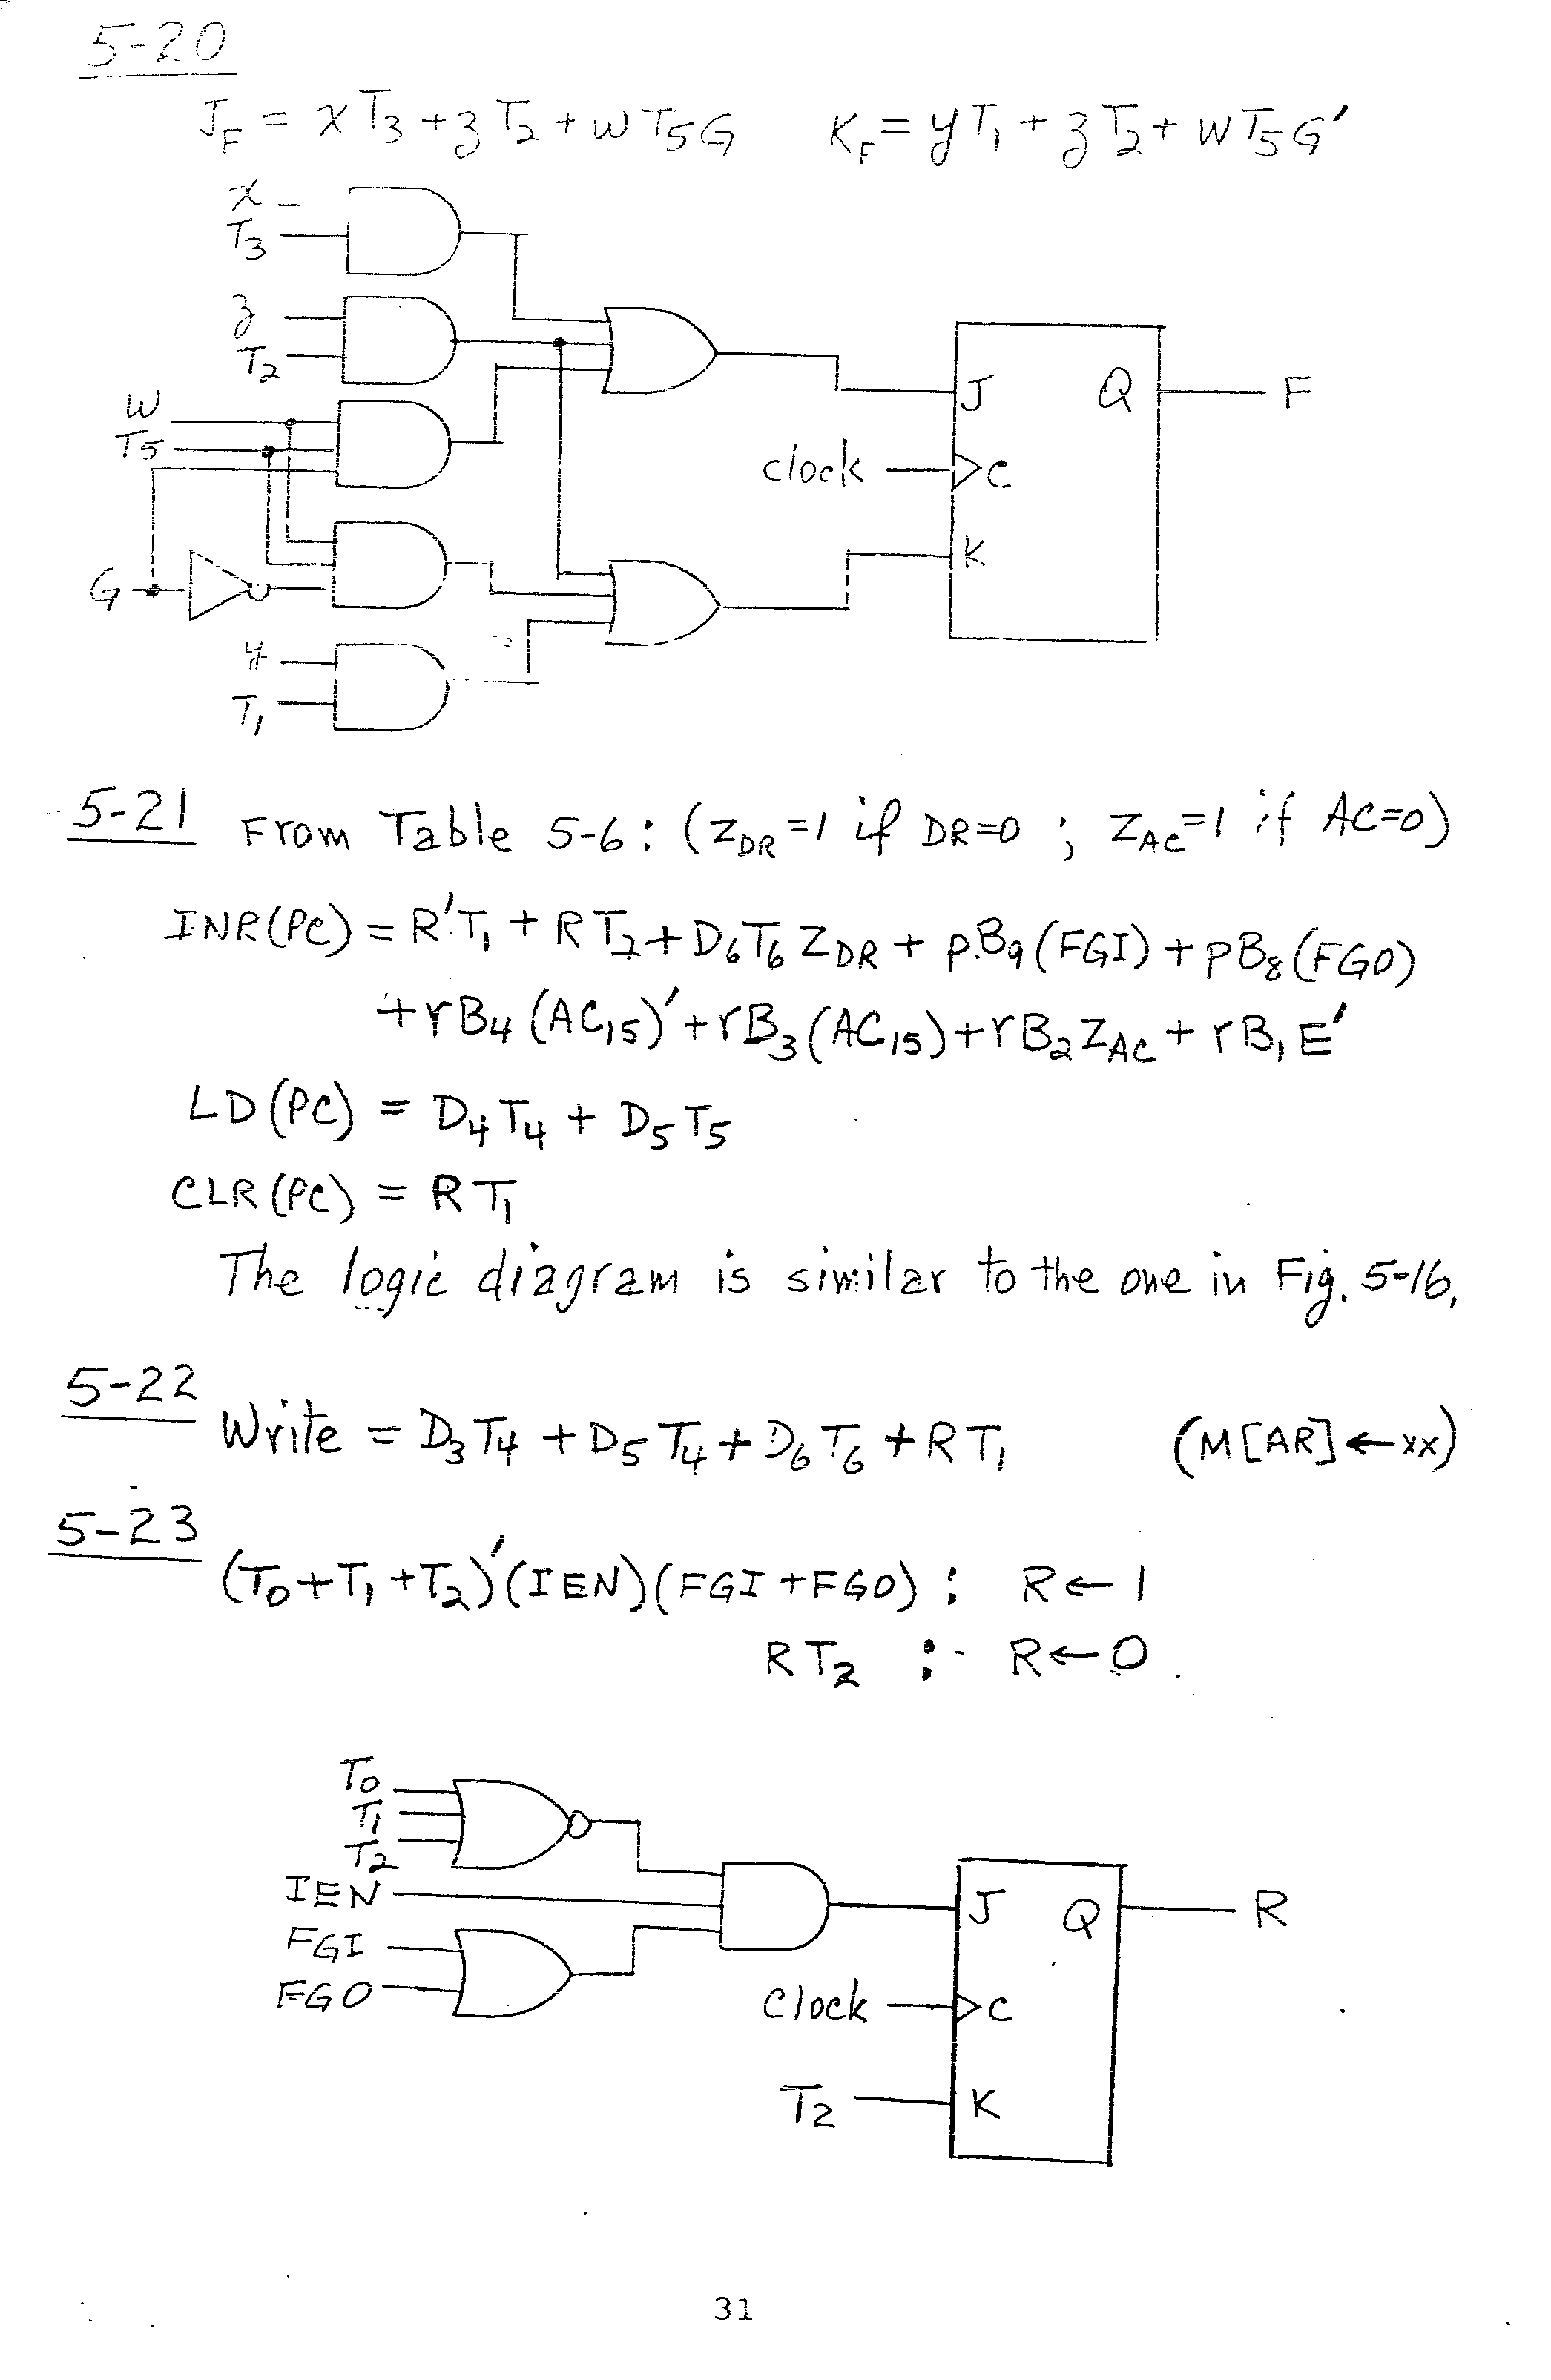 5-20
J_F = xT₃ + zT₂ + wT₅G K_F = yT₁ + zT₂ + wT₅G′
x
T₃
z
T₂
w
T₅
G
y
T₁
J Q F
clock C
K
5-21 From Table 5-6: (Z_DR = 1 if DR=0 ; Z_AC = 1 if AC=0)
INR(PC) = R′T₁ + RT₂ + D₆T₆Z_DR + pB₉(FGI) + pB₈(FGO)
+ rB₄(AC₁₅)′ + rB₃(AC₁₅) + rB₂Z_AC + rB₁E′
LD(PC) = D₄T₄ + D₅T₅
CLR(PC) = RT₁
The logic diagram is similar to the one in Fig. 5-16.
5-22
Write = D₃T₄ + D₅T₄ + D₆T₆ + RT₁ (M[AR]←xx)
5-23
(T₀+T₁+T₂)′(IEN)(FGI+FGO) : R←1
RT₂ : R←0
T₀
T₁
T₂
IEN
FGI
FGO
J Q R
Clock C
T₂ K
31